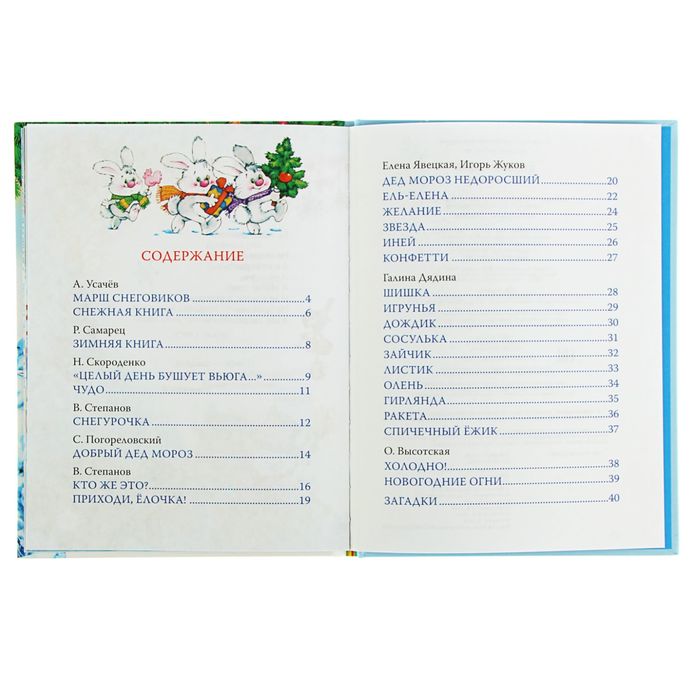 СОДЕРЖАНИЕ
А. Усачёв
МАРШ СНЕГОВИКОВ ........ 4
СНЕЖНАЯ КНИГА ........ 6
Р. Самарец
ЗИМНЯЯ КНИГА ........ 8
Н. Скороденко
«ЦЕЛЫЙ ДЕНЬ БУШУЕТ ВЬЮГА...» ........ 9
ЧУДО ........ 11
В. Степанов
СНЕГУРОЧКА ........ 12
С. Погореловский
ДОБРЫЙ ДЕД МОРОЗ ........ 14
В. Степанов
КТО ЖЕ ЭТО? ........ 16
ПРИХОДИ, ЁЛОЧКА! ........ 19
Елена Явецкая, Игорь Жуков
ДЕД МОРОЗ НЕДОРОСШИЙ ........ 20
ЕЛЬ-ЕЛЕНА ........ 22
ЖЕЛАНИЕ ........ 24
ЗВЕЗДА ........ 25
ИНЕЙ ........ 26
КОНФЕТТИ ........ 27
Галина Дядина
ШИШКА ........ 28
ИГРУНЬЯ ........ 29
ДОЖДИК ........ 30
СОСУЛЬКА ........ 31
ЗАЙЧИК ........ 32
ЛИСТИК ........ 33
ОЛЕНЬ ........ 34
ГИРЛЯНДА ........ 35
РАКЕТА ........ 36
СПИЧЕЧНЫЙ ЁЖИК ........ 37
О. Высотская
ХОЛОДНО! ........ 38
НОВОГОДНИЕ ОГНИ ........ 39
ЗАГАДКИ ........ 40